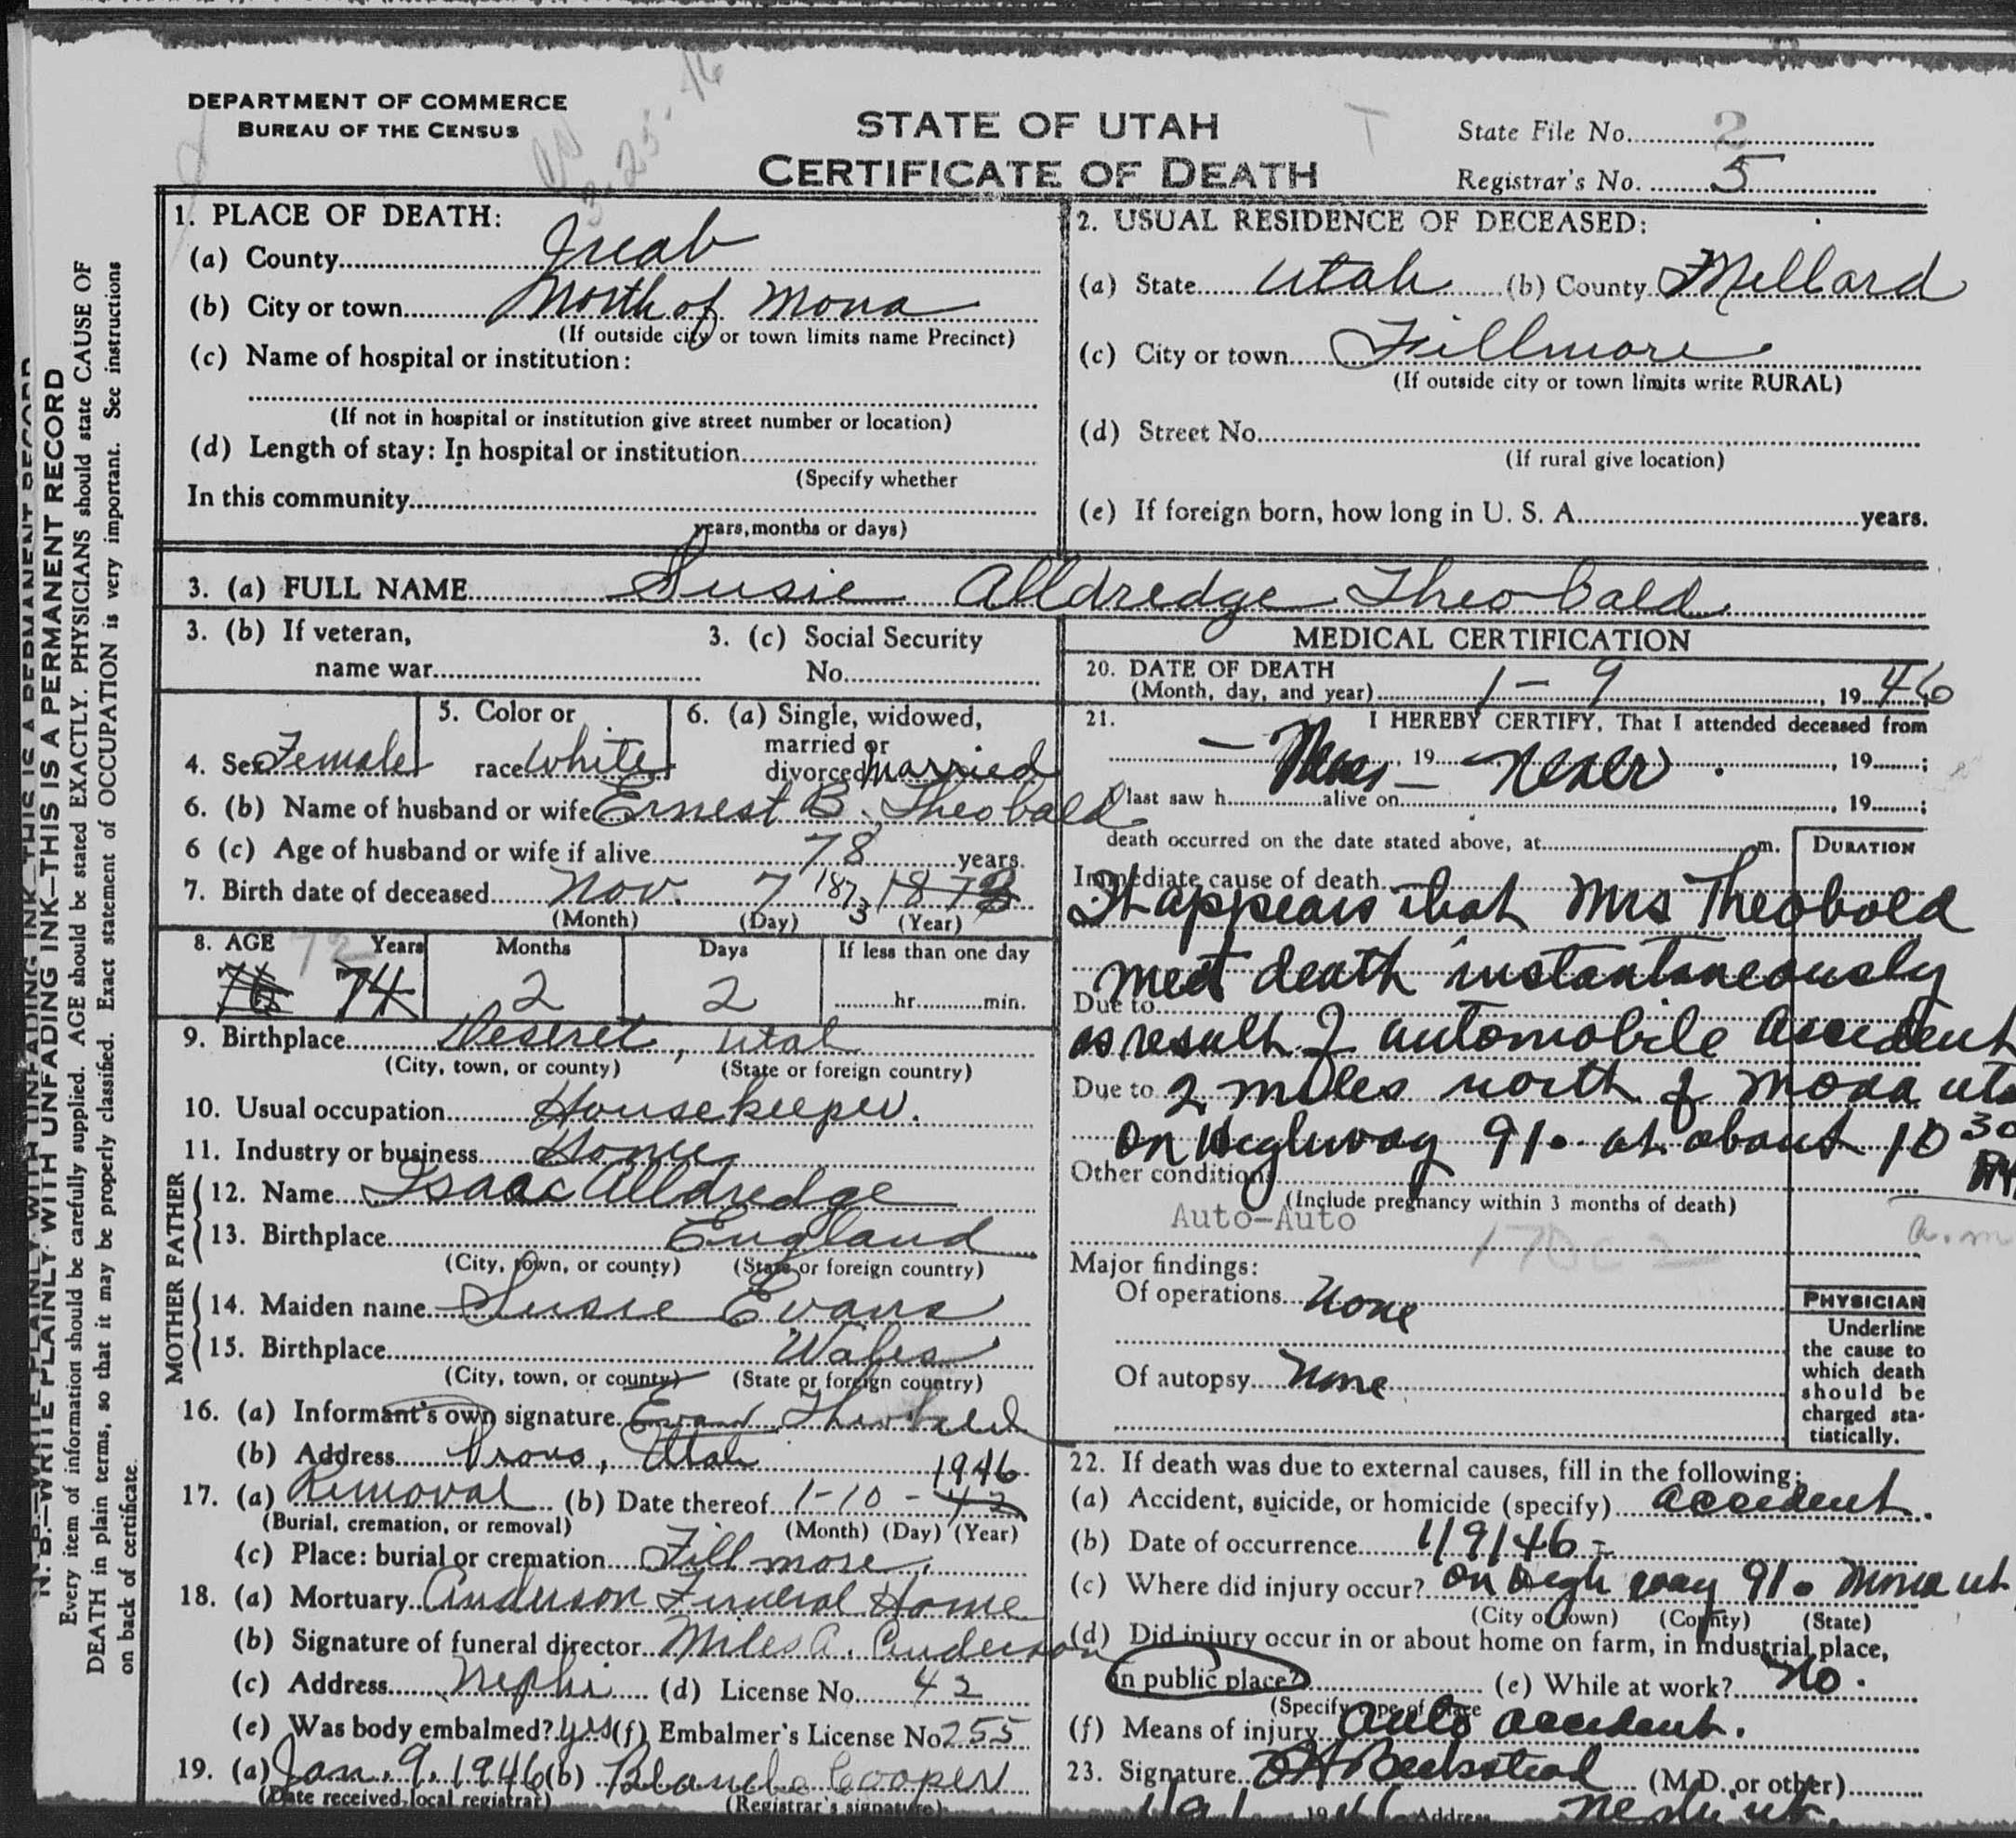 DEPARTMENT OF COMMERCE
BUREAU OF THE CENSUS
STATE OF UTAH
CERTIFICATE OF DEATH
State File No. 2
Registrar's No. 5
N. B.—WRITE PLAINLY WITH UNFADING INK—THIS IS A PERMANENT RECORD
Every item of information should be carefully supplied. AGE should be stated EXACTLY. PHYSICIANS should state CAUSE OF
DEATH in plain terms, so that it may be properly classified. Exact statement of OCCUPATION is very important. See instructions
on back of certificate.
1. PLACE OF DEATH:
(a) County Juab
(b) City or town North of Mona
(If outside city or town limits name Precinct)
(c) Name of hospital or institution:
(If not in hospital or institution give street number or location)
(d) Length of stay: In hospital or institution
(Specify whether
In this community
years, months or days)
2. USUAL RESIDENCE OF DECEASED:
(a) State Utah (b) County Millard
(c) City or town Fillmore
(If outside city or town limits write RURAL)
(d) Street No.
(If rural give location)
(e) If foreign born, how long in U. S. A. years.
3. (a) FULL NAME Susie Alldredge Theobald
3. (b) If veteran,
name war
3. (c) Social Security
No.
4. Sex Female
5. Color or
race White
6. (a) Single, widowed,
married or
divorced Married
6. (b) Name of husband or wife Ernest B. Theobald
6 (c) Age of husband or wife if alive 78 years.
7. Birth date of deceased Nov. 7 1873 1873
(Month) (Day) (Year)
8. AGE 72 Years Months Days If less than one day
76 74 2 2 hr. min.
9. Birthplace Deseret, Utah
(City, town, or county) (State or foreign country)
10. Usual occupation Housekeeper.
11. Industry or business Home
FATHER
12. Name Isaac Alldredge
13. Birthplace England
(City, town, or county) (State or foreign country)
MOTHER
14. Maiden name Susie Evans
15. Birthplace Wales
(City, town, or county) (State or foreign country)
16. (a) Informant's own signature Evan Theobald
(b) Address Provo, Utah
1946
17. (a) Removal (b) Date thereof 1-10-42
(Burial, cremation, or removal) (Month) (Day) (Year)
(c) Place: burial or cremation Fillmore
18. (a) Mortuary Anderson Funeral Home
(b) Signature of funeral director Miles A. Anderson
(c) Address Nephi (d) License No. 42
(e) Was body embalmed? yes (f) Embalmer's License No. 255
19. (a) Jan. 9, 1946 (b) Blanche Cooper
(Date received local registrar) (Registrar's signature)
MEDICAL CERTIFICATION
20. DATE OF DEATH
(Month, day, and year) 1-9, 1946
21. I HEREBY CERTIFY, That I attended deceased from
, 19 , 19 ;
I last saw h alive on , 19 ;
death occurred on the date stated above, at m.
DURATION
Immediate cause of death
It appears that Mrs Theobold
meet death instantaneously
Due to
as result of automobile accident
Due to 2 miles north of Mona
on Highway 91. at about 10 30
Other conditions
(Include pregnancy within 3 months of death)
Auto-Auto
a.m
Major findings:
Of operations None
Of autopsy None
PHYSICIAN
Underline
the cause to
which death
should be
charged sta-
tistically.
22. If death was due to external causes, fill in the following:
(a) Accident, suicide, or homicide (specify) accident.
(b) Date of occurrence 1/9/46-
(c) Where did injury occur? on High way 91. Mona ut
(City or town) (County) (State)
(d) Did injury occur in or about home on farm, in industrial place,
in public place? (e) While at work? No.
(Specify type of place
(f) Means of injury Auto accident.
23. Signature Beckstead (M.D. or other)
1946 Address Nephi ut.